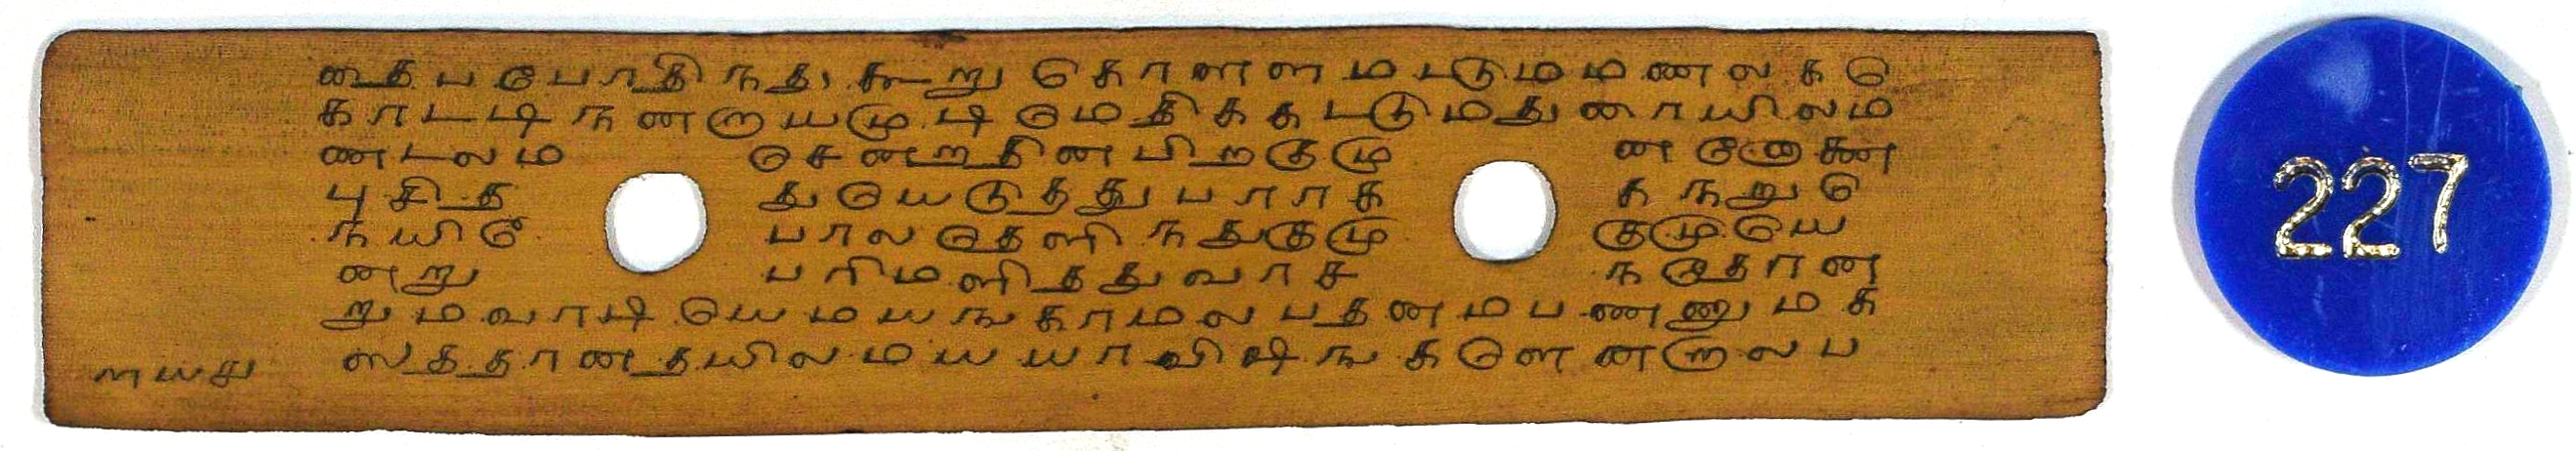 தைபபோதிநது கூறு கொளளமடடுமமணலகெ
காடடிநனறாயமூடிமெதிககடடுமதுரையிலம
ணடலம செனறதினபிறகுமு னனோகண
புசித துயெடுததுபபாராக க நறுெ
நயிபோலதெளிநதுகுமு குமுயெ
னறு பரிமளிததுவாச நதோன
றுமவாடியெமயஙகாமலபதனமபணணுமக
ஸததானதயிலமயயாவிஷிஙகளெனறாலப
ளயசு
227